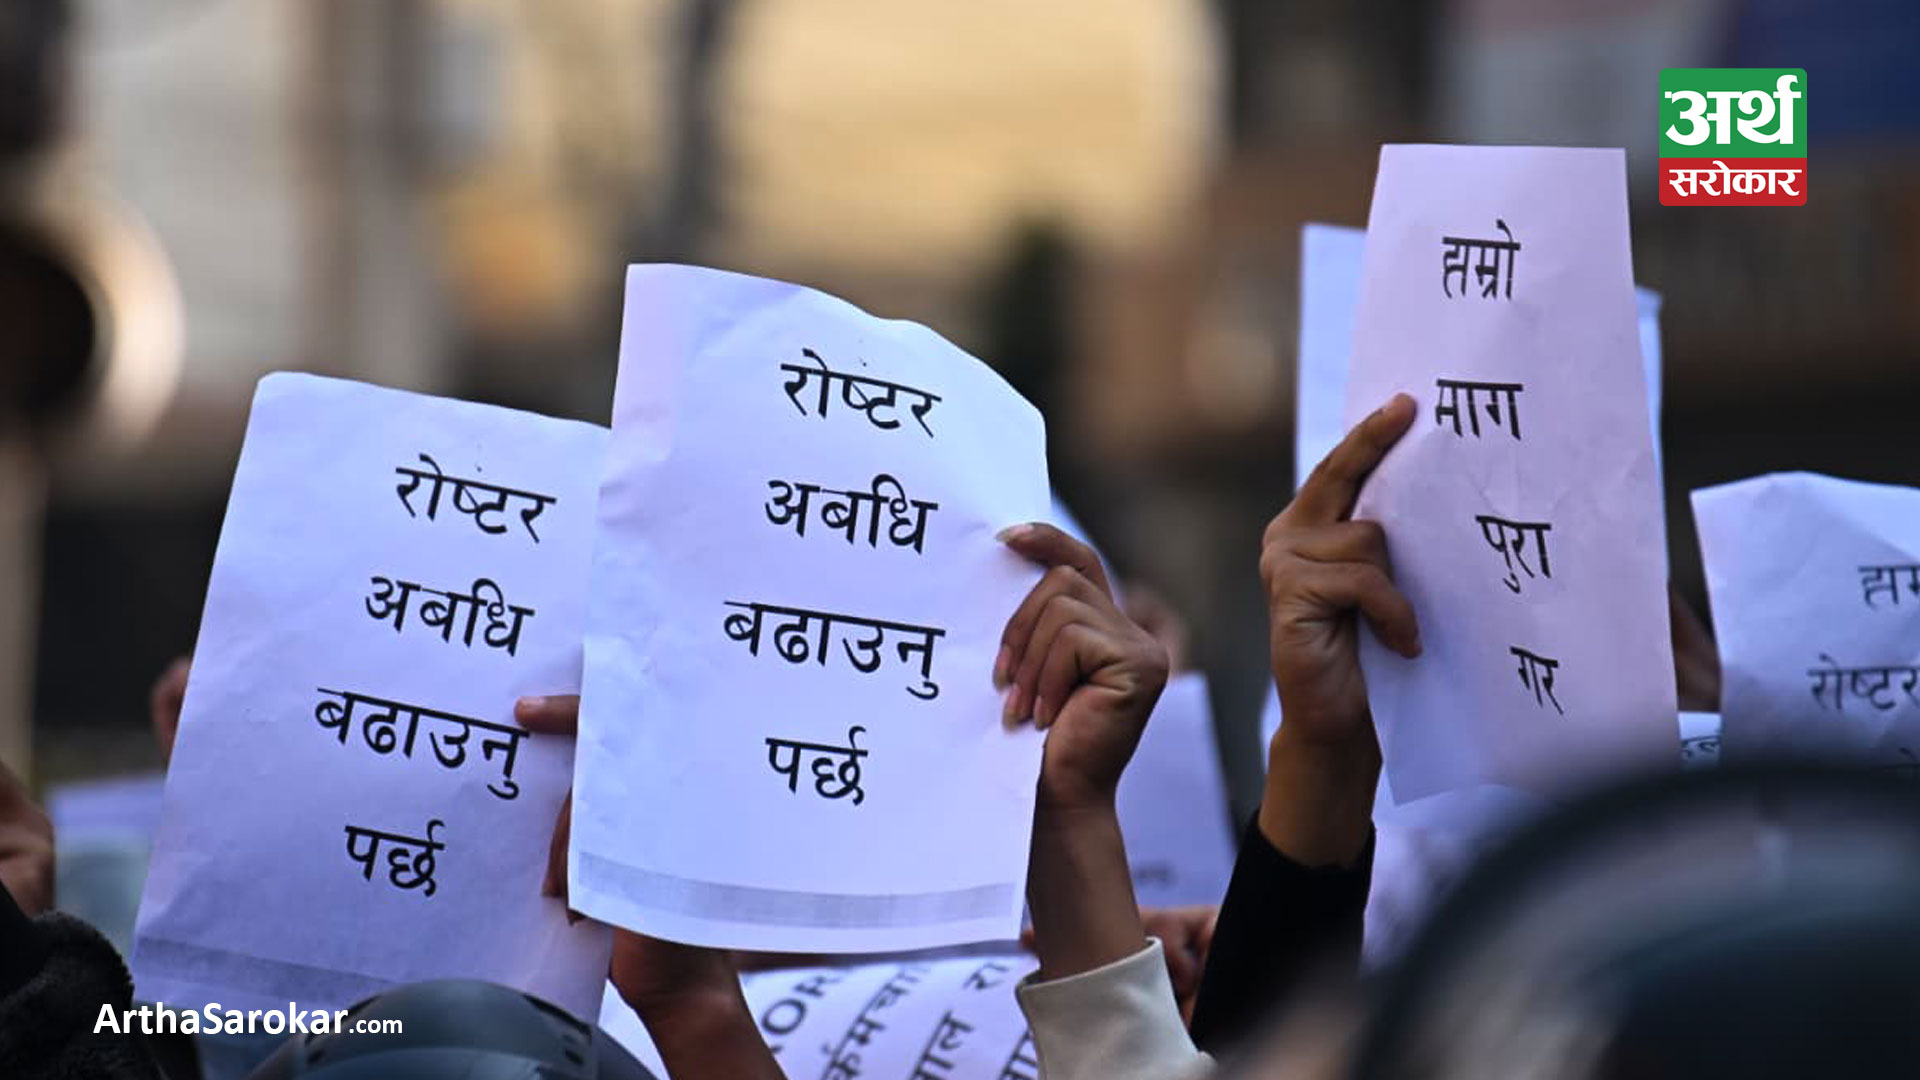 अर्थ
सरोकार
रोष्टंर
अबधि
बढाउनु
पर्छ
रोष्टंर
अबधि
बढाउनु
पर्छ
हाम्रो
माग
पुरा
गर
रोष्टर
ArthaSarokar.com